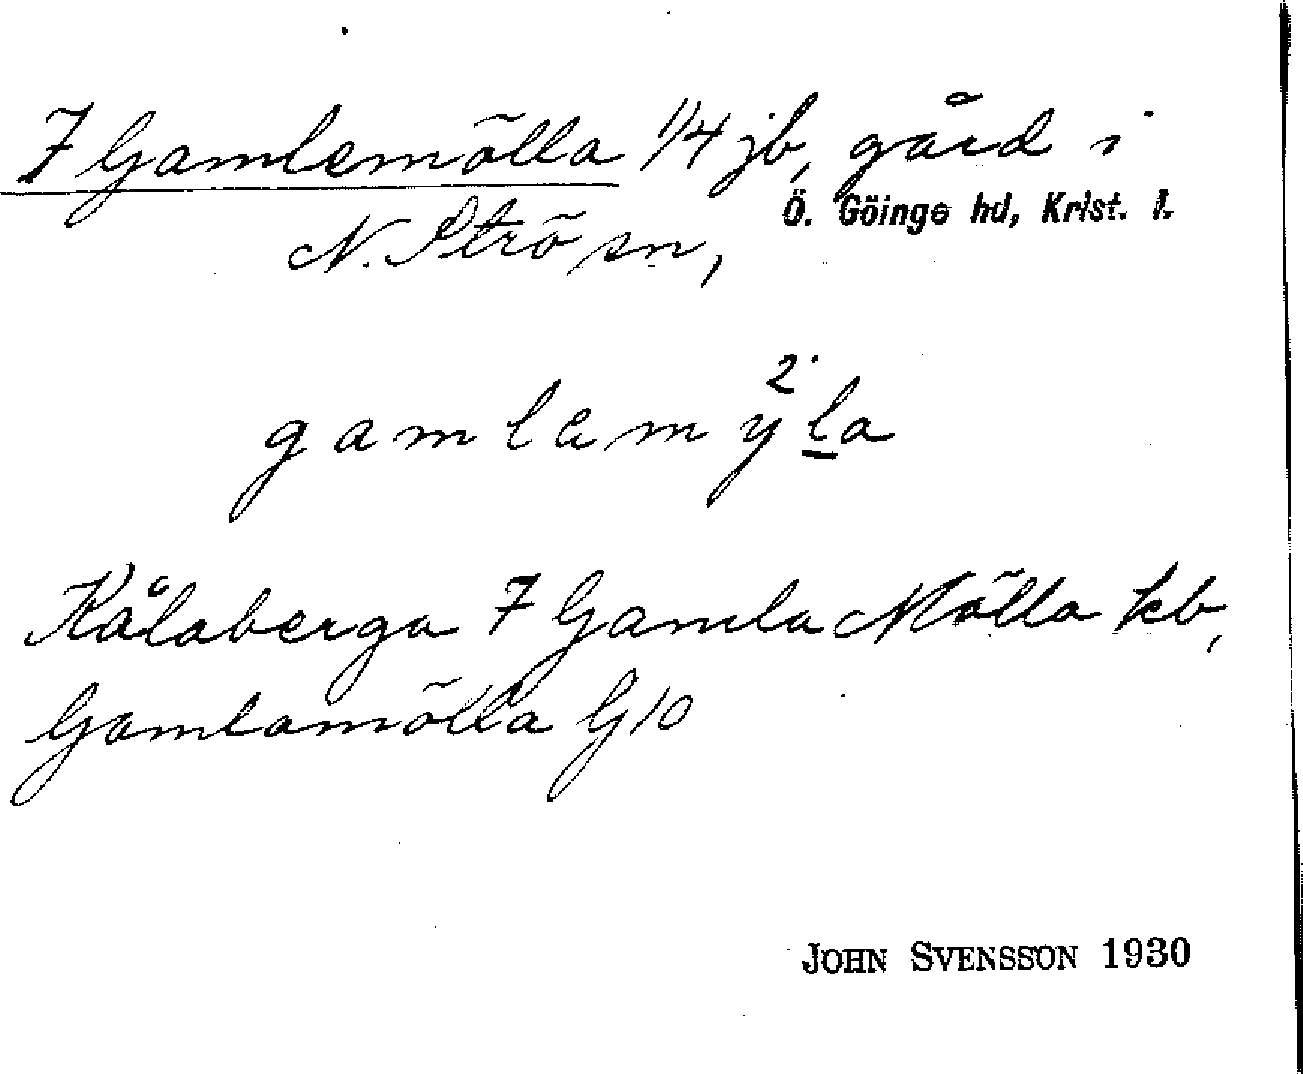 7 Gamlemölla 1/4 jb, gård i
N. Strö sn, Ö. Göinge hd, Krist. l.
gamlamÿ²la
Kålaberga 7 Gamla Mölla kb,
Gamlamölla G10
JOHN SVENSSON 1930